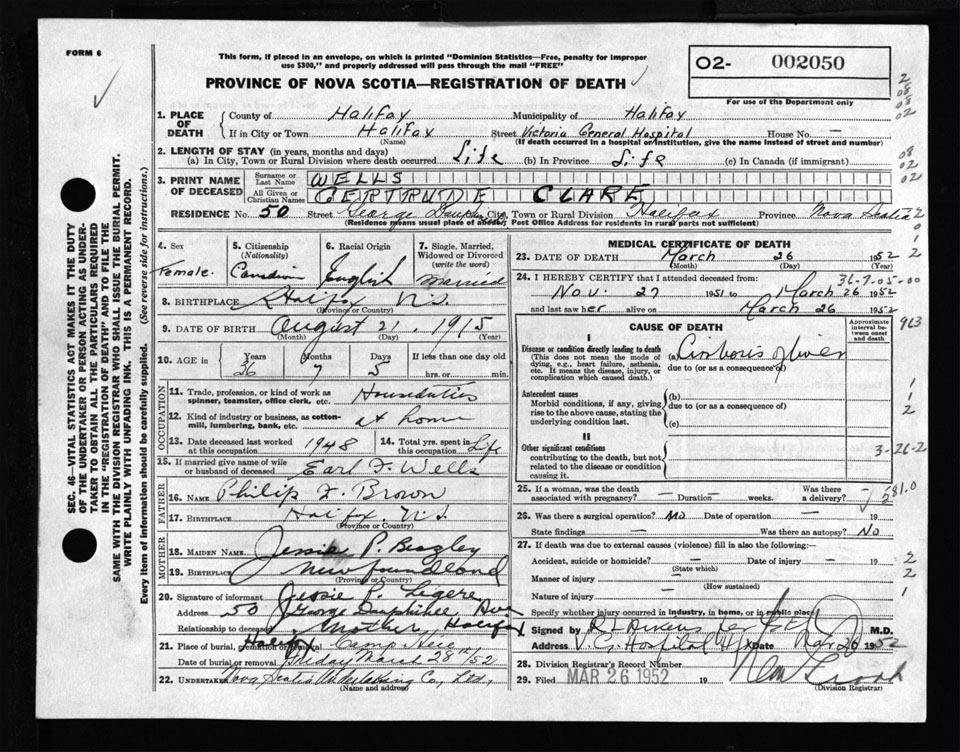 FORM 6
This form, if placed in an envelope, on which is printed "Dominion Statistics—Free, penalty for improper
use $300," and properly addressed will pass through the mail "FREE"
PROVINCE OF NOVA SCOTIA—REGISTRATION OF DEATH
02- 002050
For use of the Department only
2
08
08
02
1. PLACE OF DEATH
County of Halifax Municipality of Halifax
If in City or Town Halifax Street Victoria General Hospital House No. —
(Name) (If death occurred in a hospital or institution, give the name instead of street and number)
2. LENGTH OF STAY (in years, months and days)
(a) In City, Town or Rural Division where death occurred Life (b) In Province Life (c) In Canada (if immigrant)
08
02
02
3. PRINT NAME OF DECEASED
Surname or Last Name WELLS
All Given or Christian Names GERTRUDE CLARE
RESIDENCE No. 50 Street George Dauphinee City, Town or Rural Division Halifax Province Nova Scotia
(Residence means usual place of abode. Post Office Address for residents in rural parts not sufficient)
2
0
1
2
4. Sex Female
5. Citizenship (Nationality) Canadian
6. Racial Origin English
7. Single, Married, Widowed or Divorced (write the word) Married
8. BIRTHPLACE Halifax N.S.
(Province or Country)
9. DATE OF BIRTH August 21. 1915
(Month) (Day) (Year)
10. AGE in Years 36 Months 7 Days 5 If less than one day old
hrs. or min.
OCCUPATION
11. Trade, profession, or kind of work as spinner, teamster, office clerk, etc. Houseduties
12. Kind of industry or business, as cotton-mill, lumbering, bank, etc. at home
13. Date deceased last worked at this occupation 1948
14. Total yrs. spent in this occupation Life
15. If married give name of wife or husband of deceased Earl F. Wells
FATHER
16. NAME Philip F. Brown
17. BIRTHPLACE Halifax, N.S.
(Province or Country)
MOTHER
18. MAIDEN NAME Jessie P. Beazley
19. BIRTHPLACE Newfoundland
(Province or Country)
20. Signature of informant Jessie P. Legere
Address 50 George Dauphinee Ave
Relationship to deceased Mother, Halifax
21. Place of burial, cremation or removal Halifax Camp Hill
Date of burial or removal Friday March 28th /52
22. UNDERTAKER Nova Scotia Undertaking Co., Ltd.,
(Name and address)
MEDICAL CERTIFICATE OF DEATH
23. DATE OF DEATH March 26 1952
(Month) (Day) (Year)
24. I HEREBY CERTIFY that I attended deceased from: 36-7-05-00
Nov. 27 1951 to March 26 1952
and last saw her alive on March 26 1952
CAUSE OF DEATH
Approximate interval between onset and death
I
Disease or condition directly leading to death
(This does not mean the mode of dying, e.g., heart failure, asthenia, etc. It means the disease, injury, or complication which caused death.)
(a) Cirrhosis of liver
due to (or as a consequence of)
Antecedent causes
Morbid conditions, if any, giving rise to the above cause, stating the underlying condition last.
(b)
due to (or as a consequence of)
(c)
II
Other significant conditions
contributing to the death, but not related to the disease or condition causing it.
1
2
3-26-2
581.0
25. If a woman, was the death associated with pregnancy? — Duration — weeks. Was there a delivery? —
26. Was there a surgical operation? No Date of operation — 19
State findings — Was there an autopsy? No
27. If death was due to external causes (violence) fill in also the following:—
Accident, suicide or homicide? — Date of injury — 19
(State which)
Manner of injury —
(How sustained)
Nature of injury —
2
2
1
Specify whether injury occurred in industry, in home, or in public place
Signed by M.D.
Address V. G. Hospital Hfx Date Mar 26 1952
28. Division Registrar's Record Number
29. Filed MAR 26 1952 19
(Division Registrar)
SEC. 46—VITAL STATISTICS ACT MAKES IT THE DUTY
OF THE UNDERTAKER OR PERSON ACTING AS UNDER-
TAKER TO OBTAIN ALL THE PARTICULARS REQUIRED
IN THE "REGISTRATION OF DEATH" AND TO FILE THE
SAME WITH THE DIVISION REGISTRAR WHO SHALL ISSUE THE BURIAL PERMIT.
WRITE PLAINLY WITH UNFADING INK. THIS IS A PERMANENT RECORD.
Every item of information should be carefully supplied. (See reverse side for instructions.)